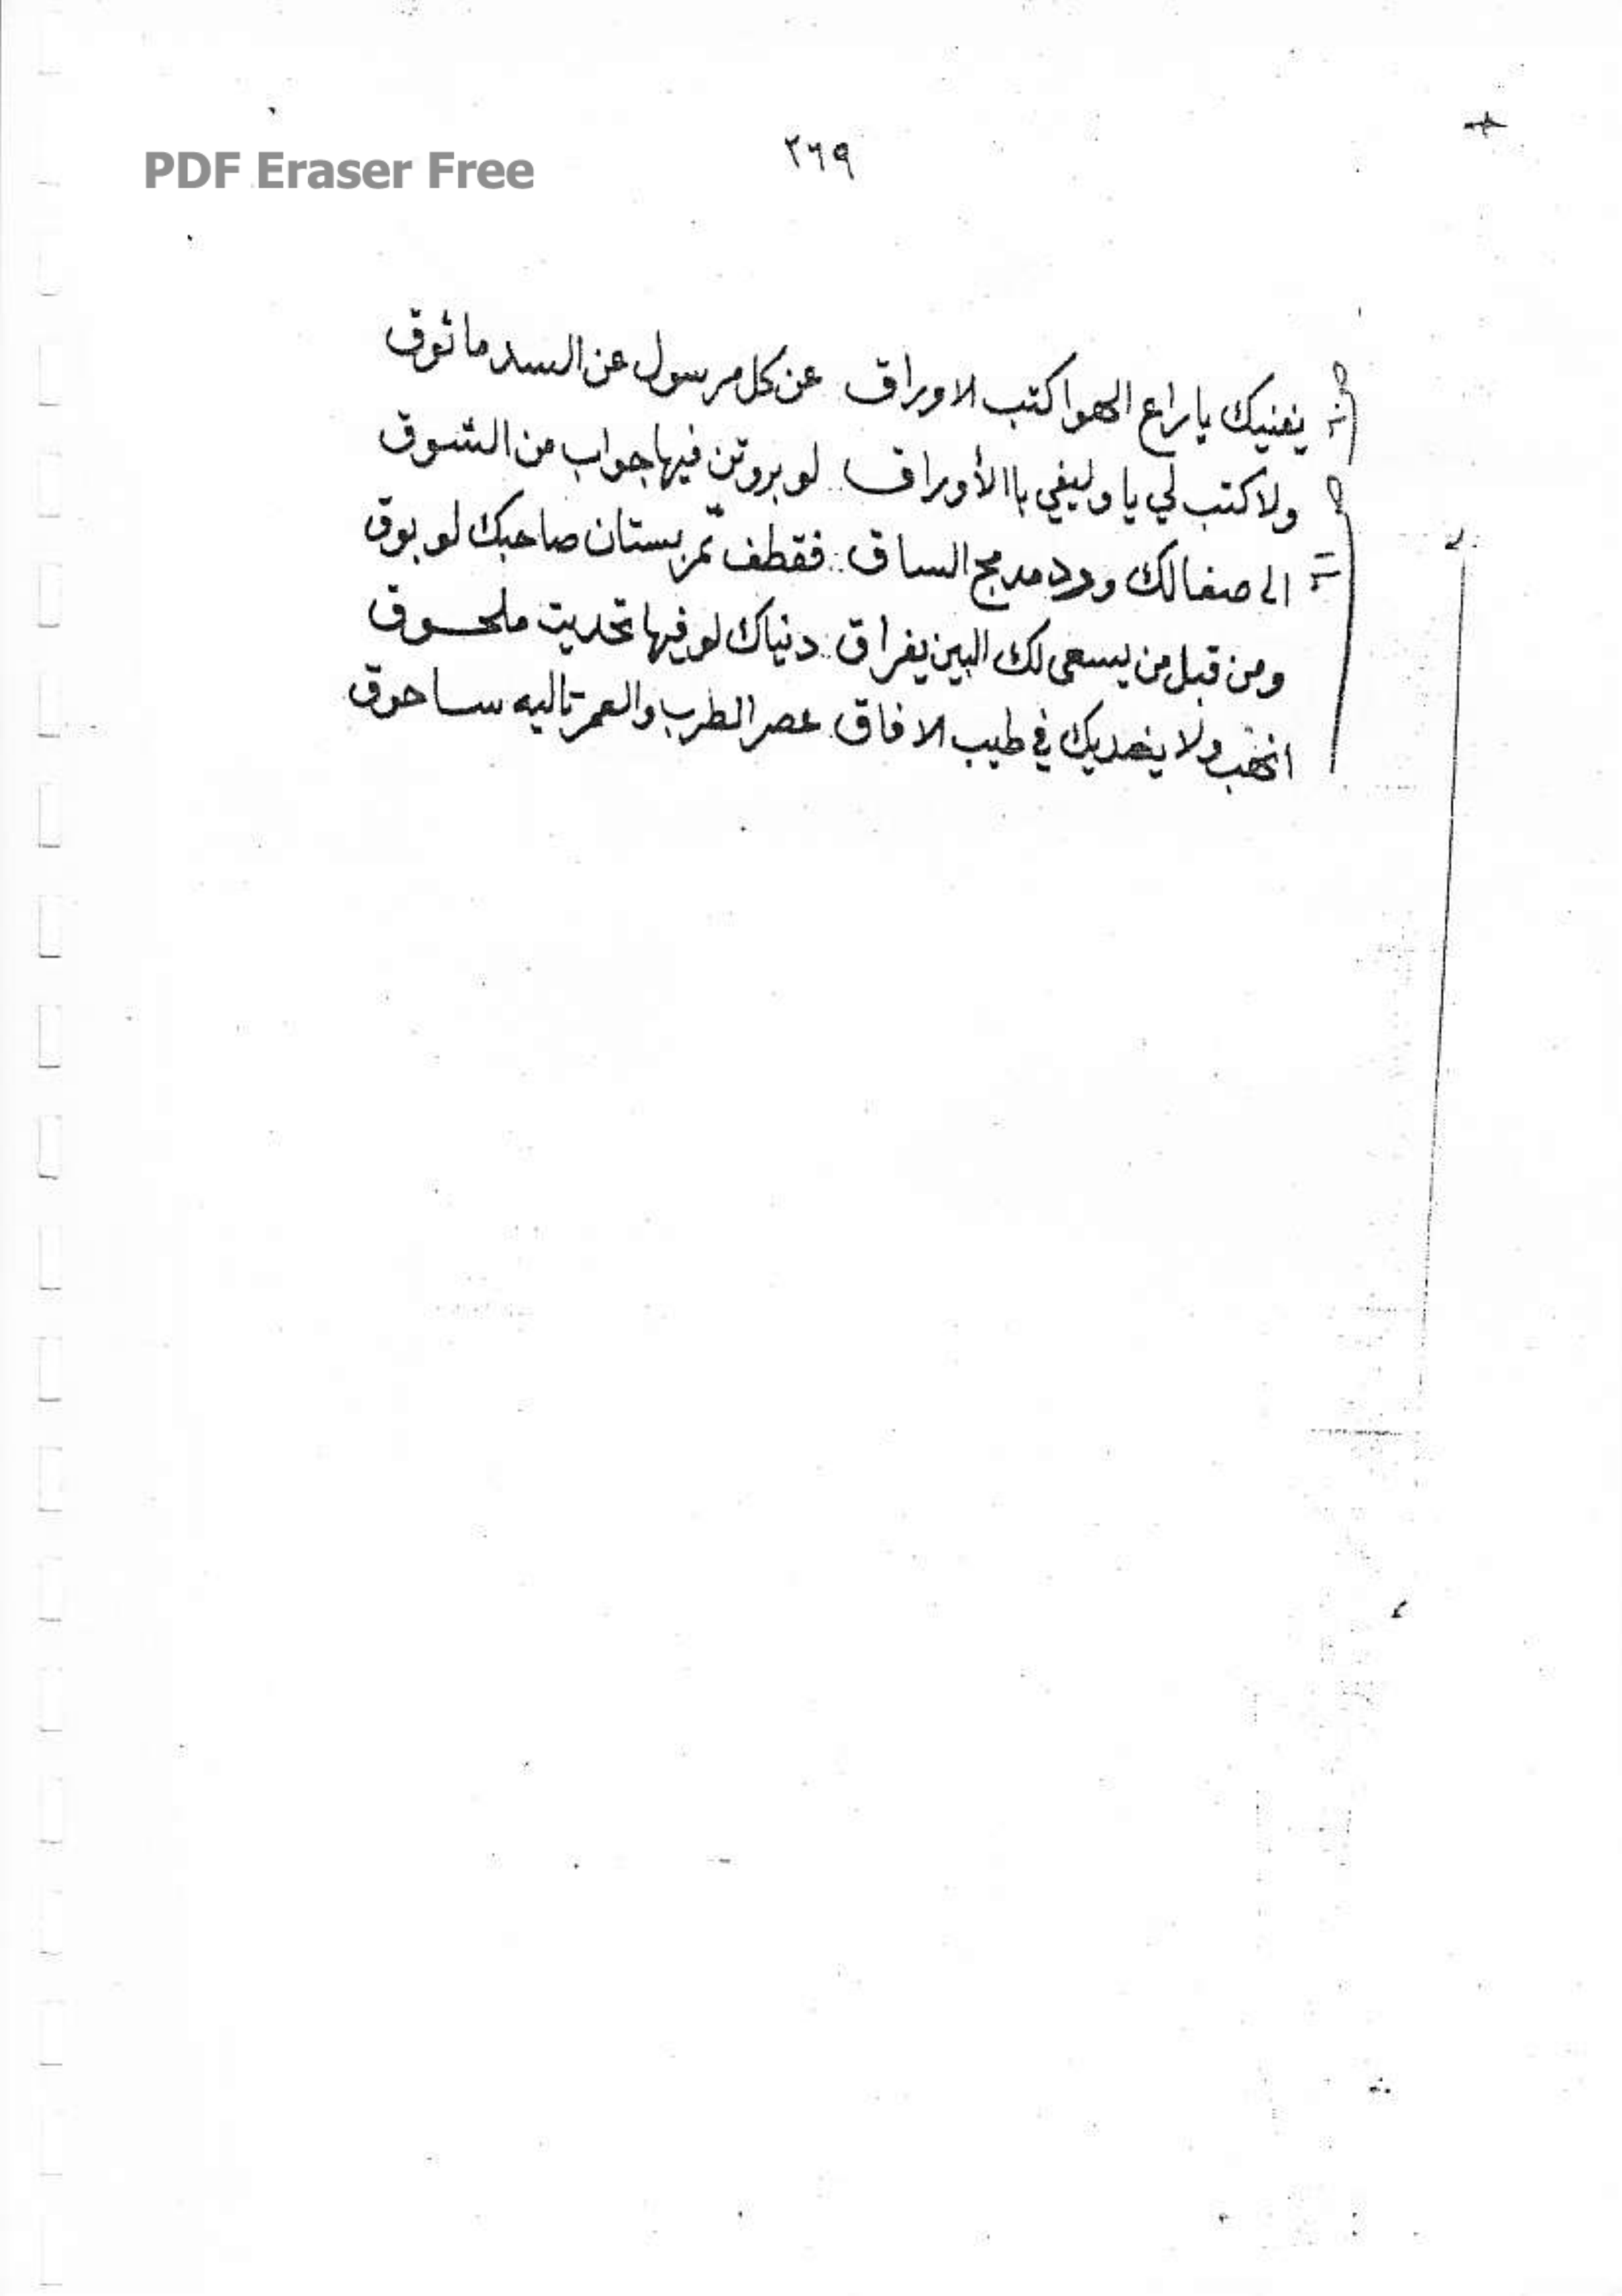 PDF Eraser Free
٢٦٩
يغنيك يا راع الهوا كتب الاوراق عن كل مرسول عن السد ما ثوق
ولا كتب لي يا وليفي باالأوراق لو بروتن فيها جواب من الشوق
الى صفالك ورد مدمج الساق فقطف ثمر بستان صاحبك لو بوق
ومن قبل من يسعى لك البين بفراق دنياك لو فيها تحديت ملحوق
انهب ولا يغديك في طيب الافاق عصر الطرب والعمر تاليه ساحوق